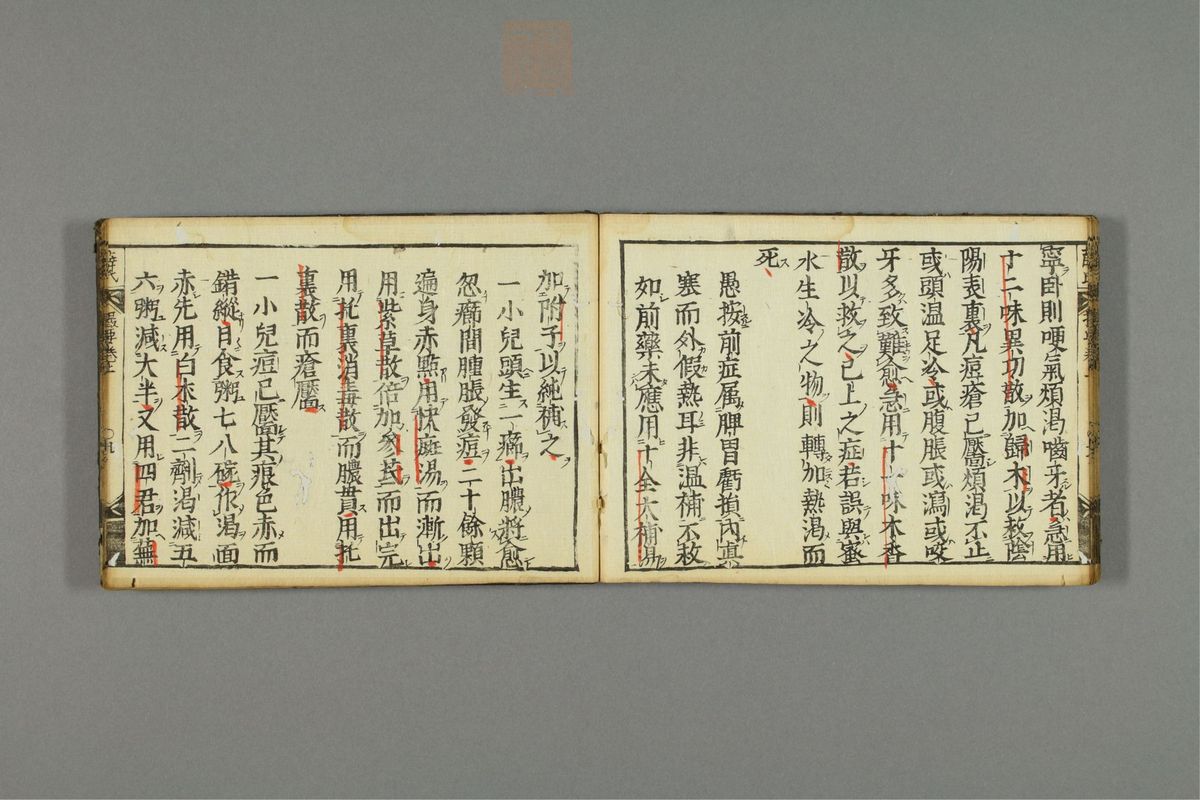 寧卧則哽氣煩渴嚙牙者急用
十二味異功散加歸木以救陰
陽表裏凡痘瘡已靨煩渴不止
或頭温足冷或腹脹或瀉或咬
牙多致難愈急用十一味木香
散以救之已上之症若誤與蜜
水生冷之物則轉加熱渴而
死
愚按前症属脾胃虧損内眞
寒而外假熱耳非温補不救
如前藥未應用十全大補湯
加附子以純補之
一小兒頭生一癤出膿將愈
忽癤間腫脹發痘二十餘顆
遍身赤點用快癍湯而漸出
用紫草散倍加參芪而出完
用托裏消毒散而膿貫用托
裏散而瘡靨
一小兒痘已靨其痕色赤而
錯縱日食粥七八碗作渴面
赤先用白朮散二劑渴減五
六粥減大半又用四君加蕪